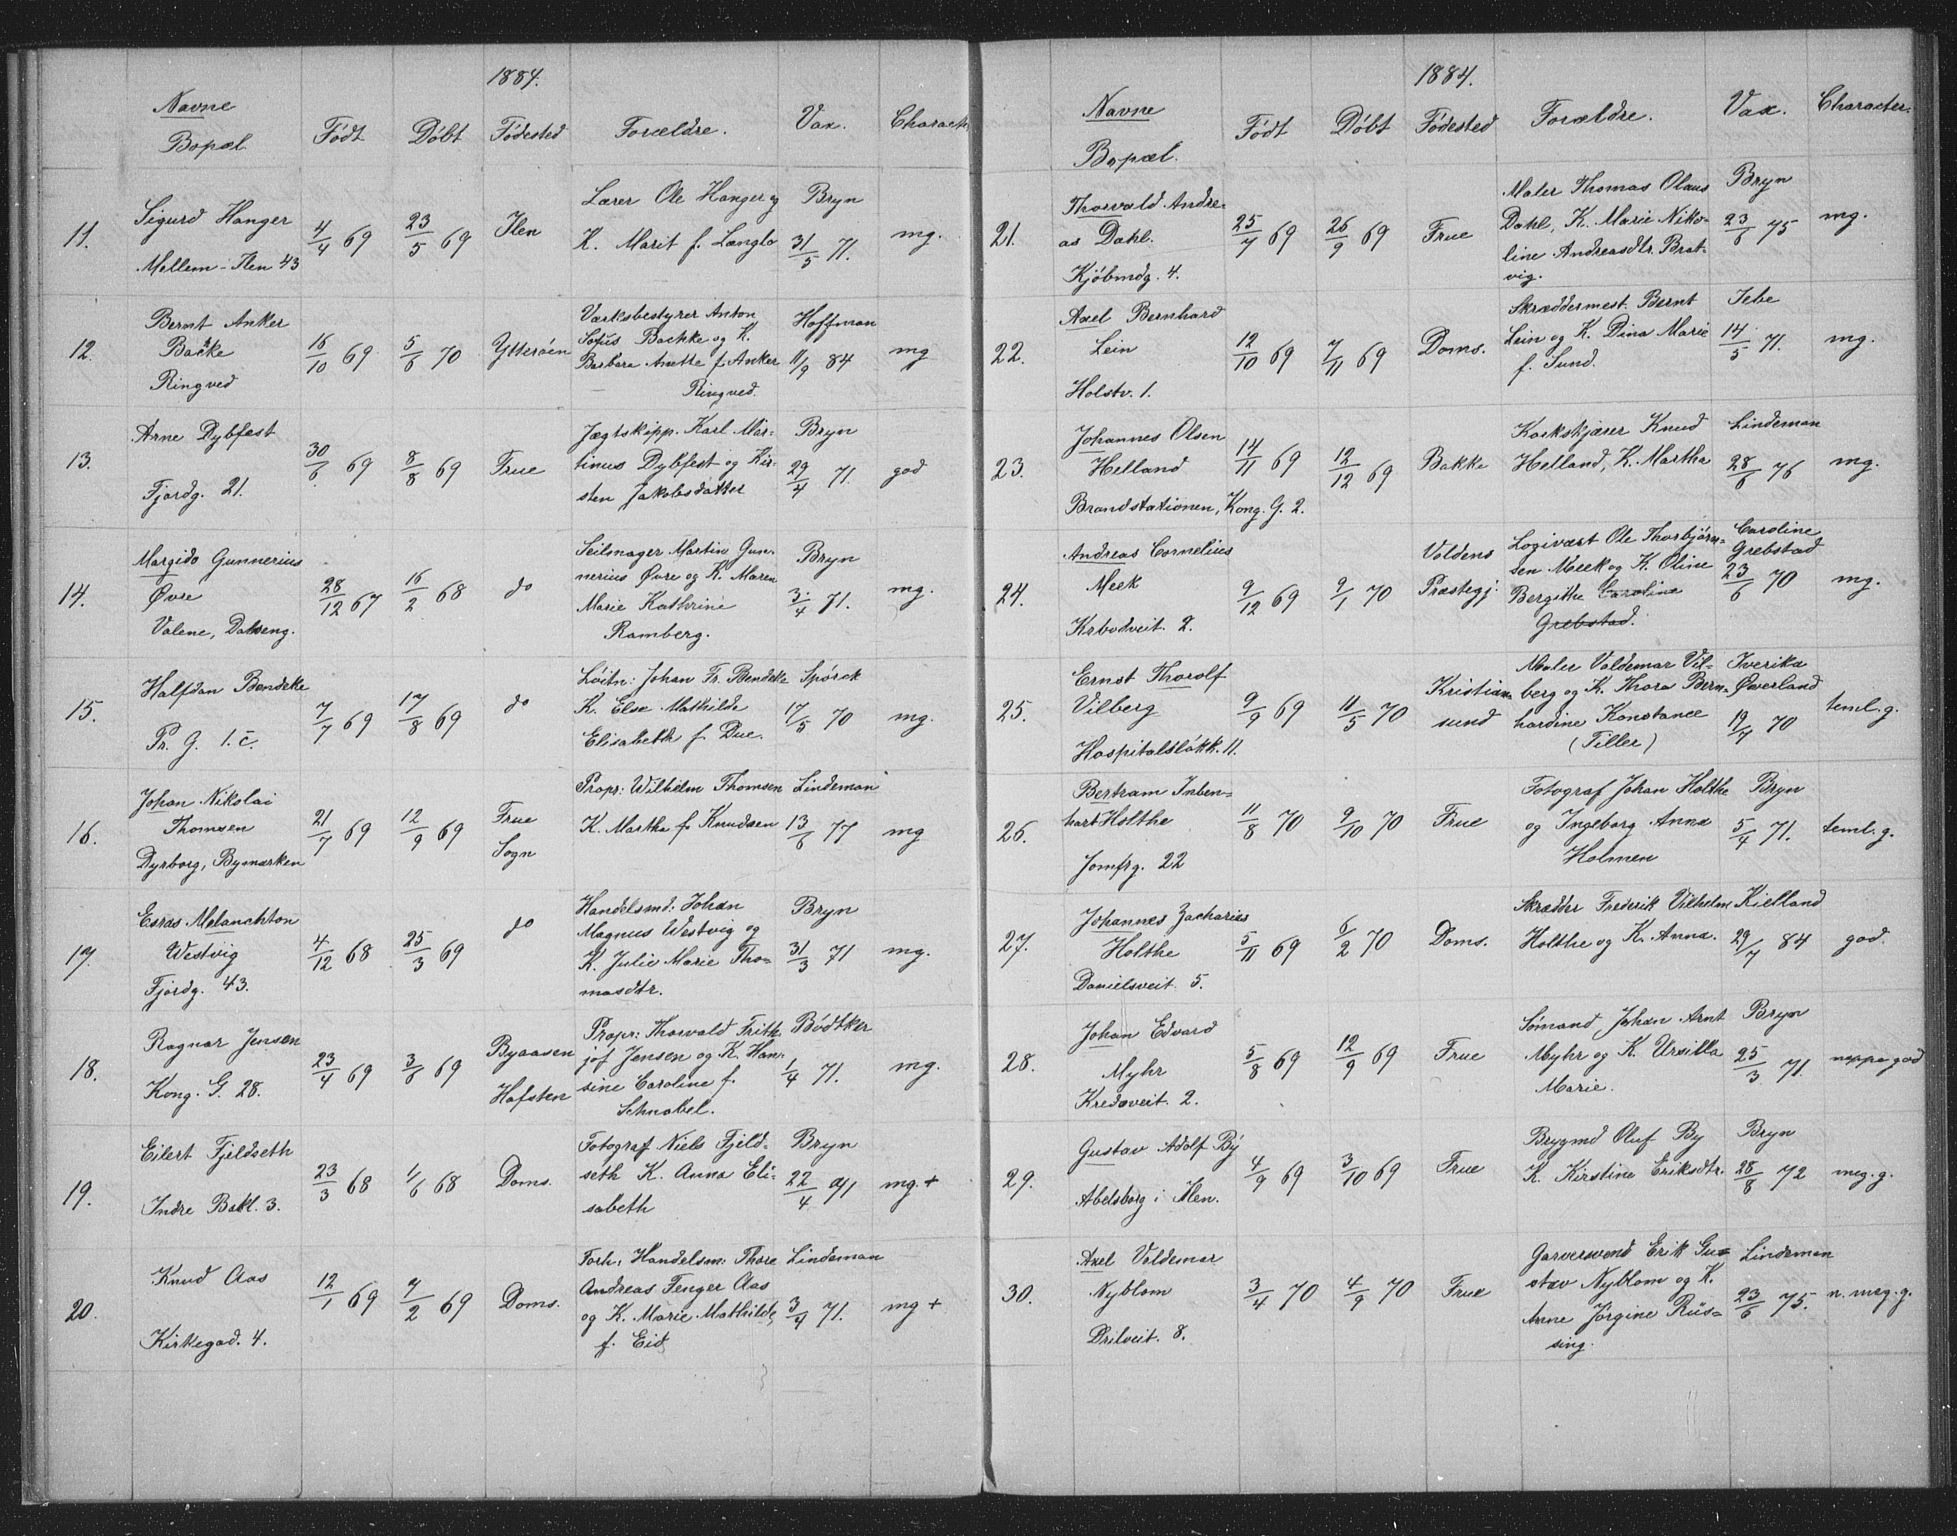 1884.
Navne
Bopæl.
Født
Døbt
Fødested
Forældre.
Vax.
Charact
11.
Sigurd Hanger
Mellem-Ilen 43
4/4 69
23/5 69
Ilen
Lærer Ole Hanger og
K. Marit f. Langlo
Bryn
31/5 71.
mg.
12.
Bernt Anker
Backe
Ringved
16/10 69
5/6 70
Ytterøen
Værksbestyrer Anton
Sofus Bachke og K.
Barbara Anette f. Anker
Ringved.
Hoffman
11/9 84
mg
13.
Arne Dybfest
Fjordg. 21.
30/6 69
8/8 69
Frue
Jægtskipp. Karl Mar-
tinus Dybfest og Kir-
sten Jakobsdatter
Bryn
29/4 71.
god
14.
Margido Gunnerius
Øvre
Valene, Dalseng.
28/12 67
16/2 68
do
Seilmager Martin Gun-
nerius Øvre og K. Maren
Marie Kathrine
Ramberg.
Bryn
3/4 71.
mg.
15.
Halfdan Bendeke
Pr. G. 1.c.
7/7 69
17/8 69
do
Løitn: Johan Fr. Bendeke
K. Else Mathilde
Elisabeth f. Due.
Spørck
17/5 70
mg.
16.
Johan Nikolai
Thomsen
Dyrborg, Bymarken
21/7 69
12/9 69
Frue
Sogn
Propr: Wilhelm Thomsen
K. Martha f. Knudsen
Lindeman
13/6 77
mg
17.
Esras Melanchton
Westvig
Fjordg. 43.
4/12 68
25/3 69
do
Handelsmd: Johan
Magnus Westvig og
K. Julie Marie Tho-
masdtr.
Bryn
31/3 71
mg.
18.
Ragnar Jensen
Kong. G. 28.
23/4 69
3/6 69
Byaasen
Hafsten
Propr: Thorvald Frith-
jof Jensen og K. Han-
sine Caroline f.
Schnabel.
Bødtker
1/4 71.
mg.
19.
Eilert Fjeldseth
Indre Bakl. 3.
23/3 68
1/6 68
Doms.
Fotograf Niels Fjeld-
seth K. Anna Eli-
sabeth
Bryn
22/4 71
mg. +
20.
Knud Aas
Kirkegad. 4.
12/1 69
7/2 69
Doms.
Forh: Handelsm: Thore
Andreas Fenger Aas
og K. Marie Mathilde
f. Eid
Lindeman
3/4 71.
mg +
1884.
Navne
Bopæl.
Født
Døbt
Fødested
Forældre.
Vax.
Character.
21.
Thorvald Andre-
as Dahl.
Kjøbmdg. 4.
25/7 69
26/9 69
Frue
Maler Thomas Olaus
Dahl, K. Marie Niko-
line Andreasdtr. Brat-
vig.
Bryn
23/6 75
mg.
22.
Axel Bernhard
Lein
Holstv. 1.
12/10 69
7/11 69
Doms.
Skræddermest. Bernt
Lein og K. Dina Marie
f. Sund.
Jebe
14/5 71.
mg.
23.
Johannes Olsen
Helland
Brandstationen, Kong. G. 2.
14/11 69
12/12 69
Bakke
Korkskjærer Knud
Helland, K. Martha
Lindeman
28/6 76
mg.
24.
Andreas Cornelius
Meek
Krbodveit. 2.
9/12 69
9/1 70
Voldens
Præstegj.
Logivært Ole Thorbjørn-
sen Meek og K. Oline
Bergithe Caroline
Grebstad.
Caroline
Grebstad
23/6 70
mg.
25.
Ernst Thorolf
Vilberg
Hospitalsløkk. 11.
9/9 69
11/5 70
Kristian-
sund
Maler Valdemar Vil-
berg og K. Thora Bern-
hardine Konstance
(Tiller)
Iverika
Øverland
19/7 70
teml. g.
26.
Bertram Inben-
hart Holthe
Jomfrg. 22
11/8 70
9/10 70
Frue
Fotograf Johan Holthe
og Ingeborg Anna
Holmen
Bryn
5/4 71.
teml. g.
27.
Johannes Zacharias
Holthe
Danielsveit. 5.
5/11 69
6/2 70
Doms.
Skrædder Frederik Vilhelm
Holthe og K. Anna.
Kielland
29/7 84
god.
28.
Johan Edvard
Myhr
Kredsveit. 2.
5/8 69
12/9 69
Frue
Sømand Johan Arnt
Myhr og K. Ursilla
Marie.
Bryn
25/3 71.
neppe god
29.
Gustav Adolf By
Abelsborg i Ilen.
4/9 69
3/10 69
Frue
Brygmd Oluf By
K. Kirstine Eriksdtr.
Bryn
28/8 72
meg. g.
30.
Axel Valdemar
Nyblom
Prilveit. 8.
3/4 70
4/9 70
Frue
Garversvend Erik Gu-
stav Nyblom og K.
Anne Jørgine Rüs-
sing.
Lindeman
23/6 75.
n. meg. g.